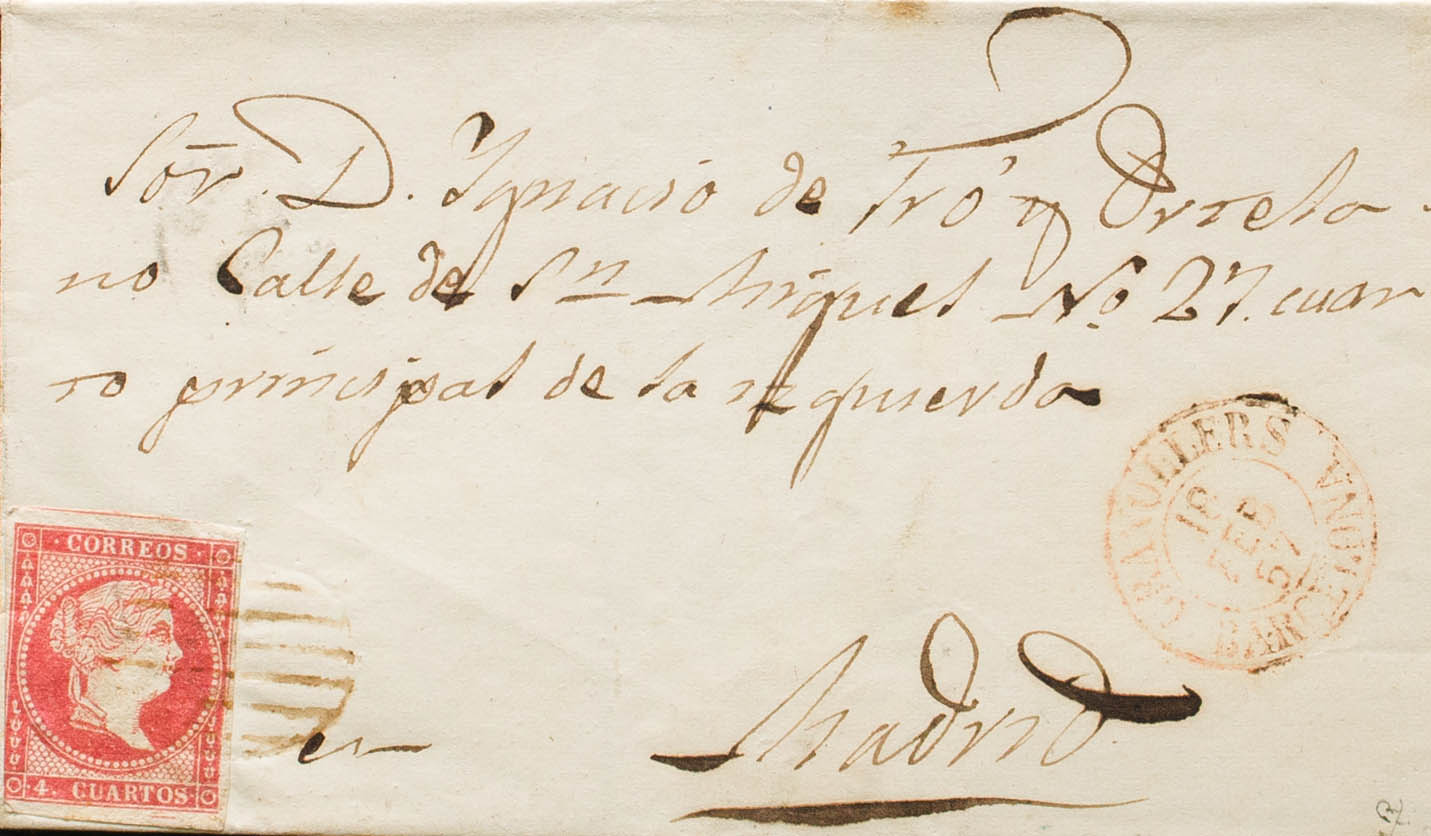 Sor. D. Ygnacio de Fró y Ortela-
no Calle de Sn. Miguel No. 27. cuar
to principal de la izquierda
GRANOLLERS
BARCELONA
18
FEB
57
CORREOS
4. CUARTOS
en Madrid